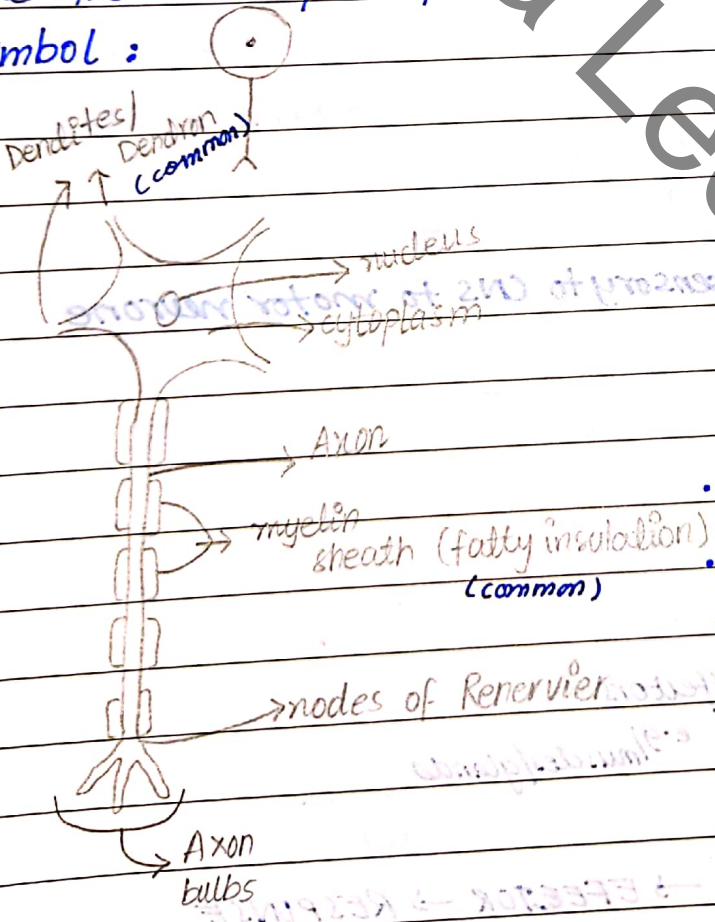 mbol :
Dendites/
Dendron
(common)
nucleus
cytoplasm
Axon
myelin
sheath (fatty insulation)
(common)
nodes of Renervier
Axon
bulbs